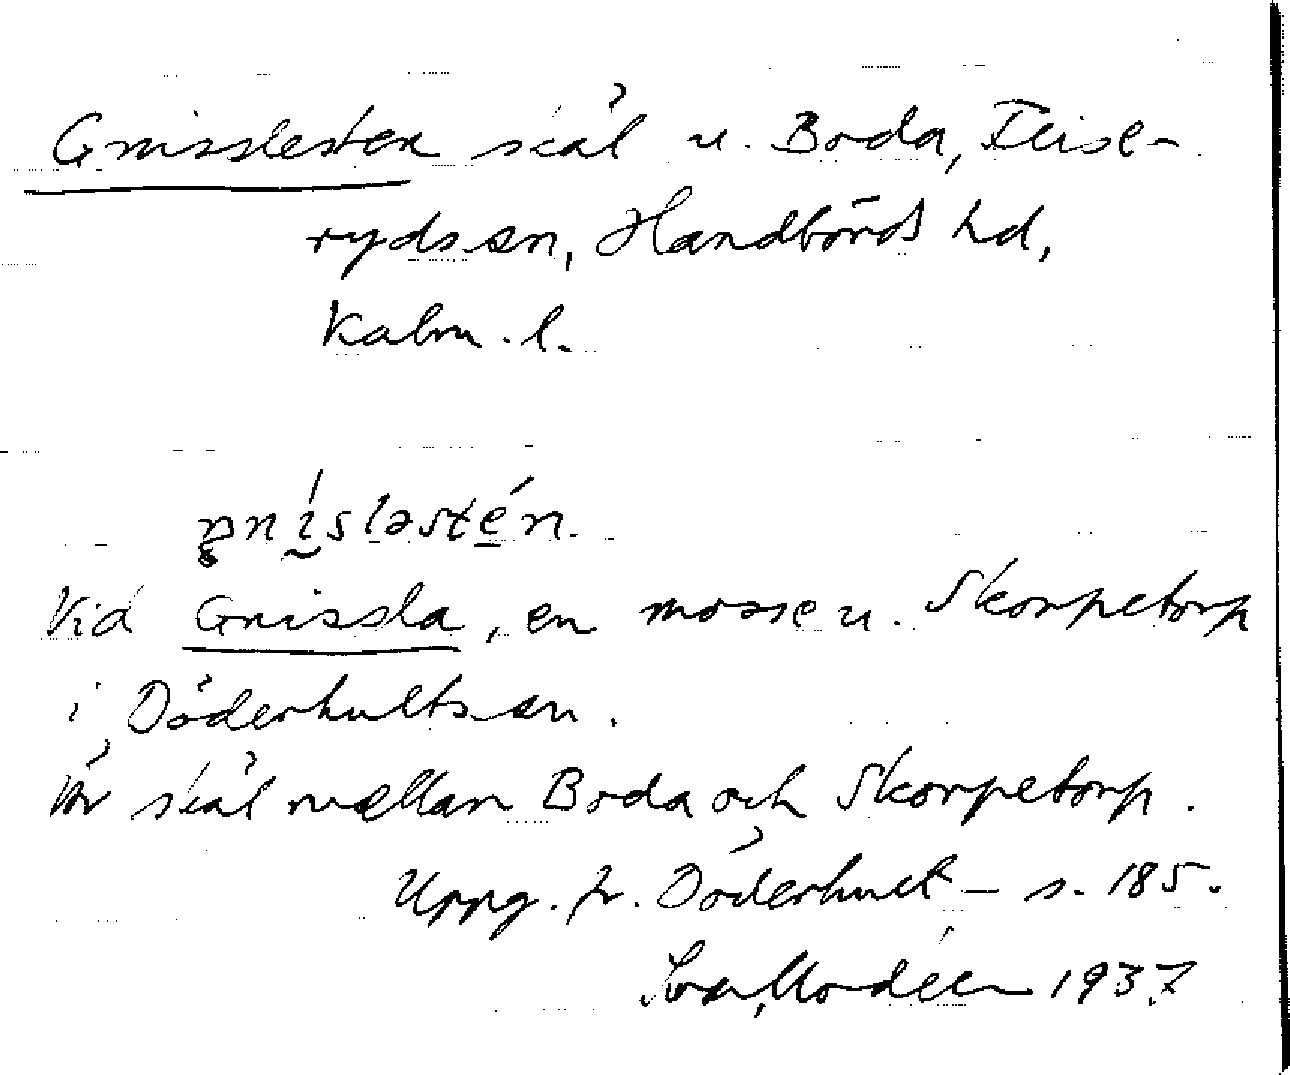 Gnisslesten skäl u. Boda, Flise-
ryds sn, Handbörds hd,
Kalm. l.
Vid Gnissla, en mosse u. Skorpetorp
i Döderhults sn.
Är skäl mellan Boda och Skorpetorp.
Uppg. fr. Döderhult – s. 185.
1937